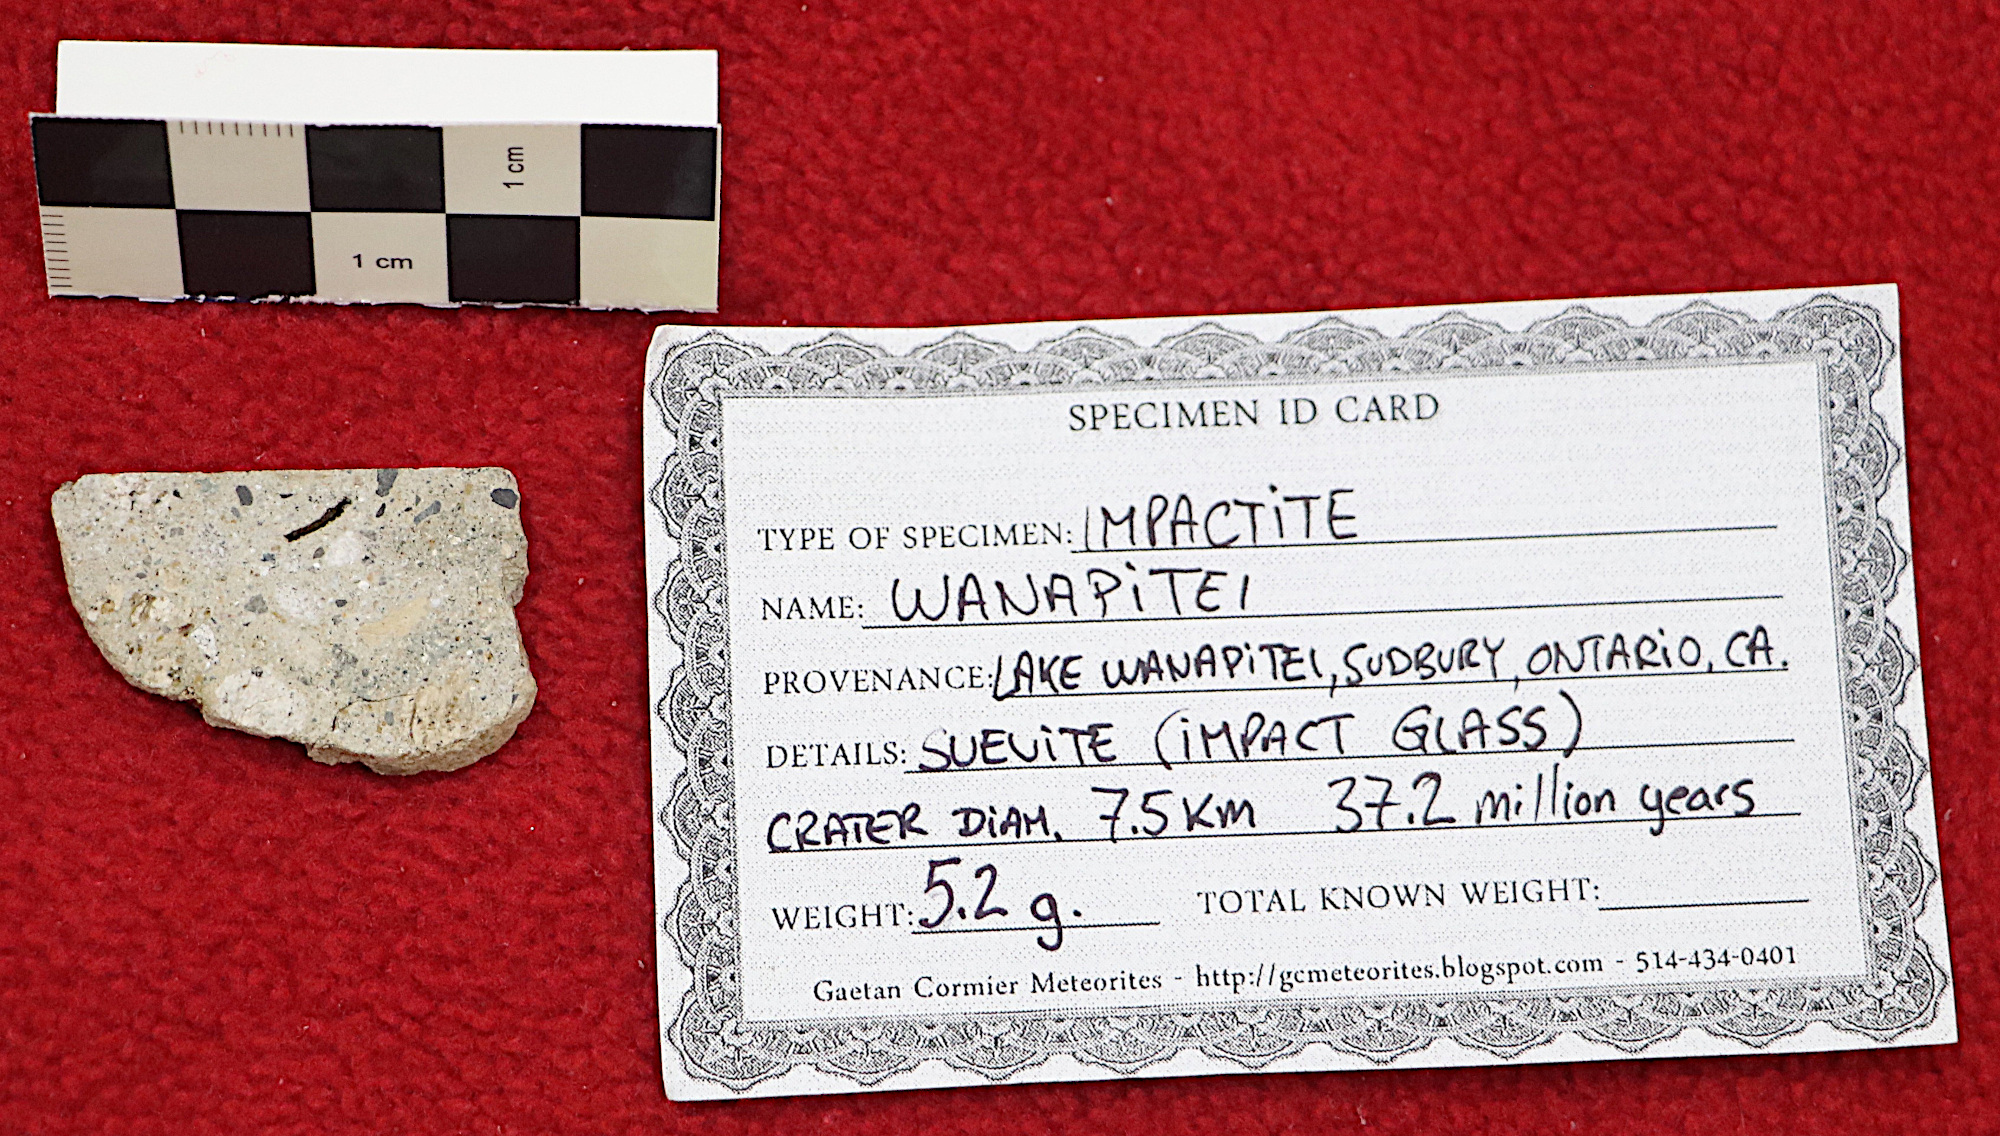 1 cm
1 cm
SPECIMEN ID CARD
TYPE OF SPECIMEN: IMPACTiTE
NAME: WANAPiTEI
PROVENANCE: LAKE WANAPiTEI, SUDBURY, ONTARiO, CA.
DETAILS: SUEViTE (iMPACT GLASS)
CRATER DiAM. 7.5 Km 37.2 million years
WEIGHT: 5.2 g. TOTAL KNOWN WEIGHT:
Gaetan Cormier Meteorites - http://gcmeteorites.blogspot.com - 514-434-0401